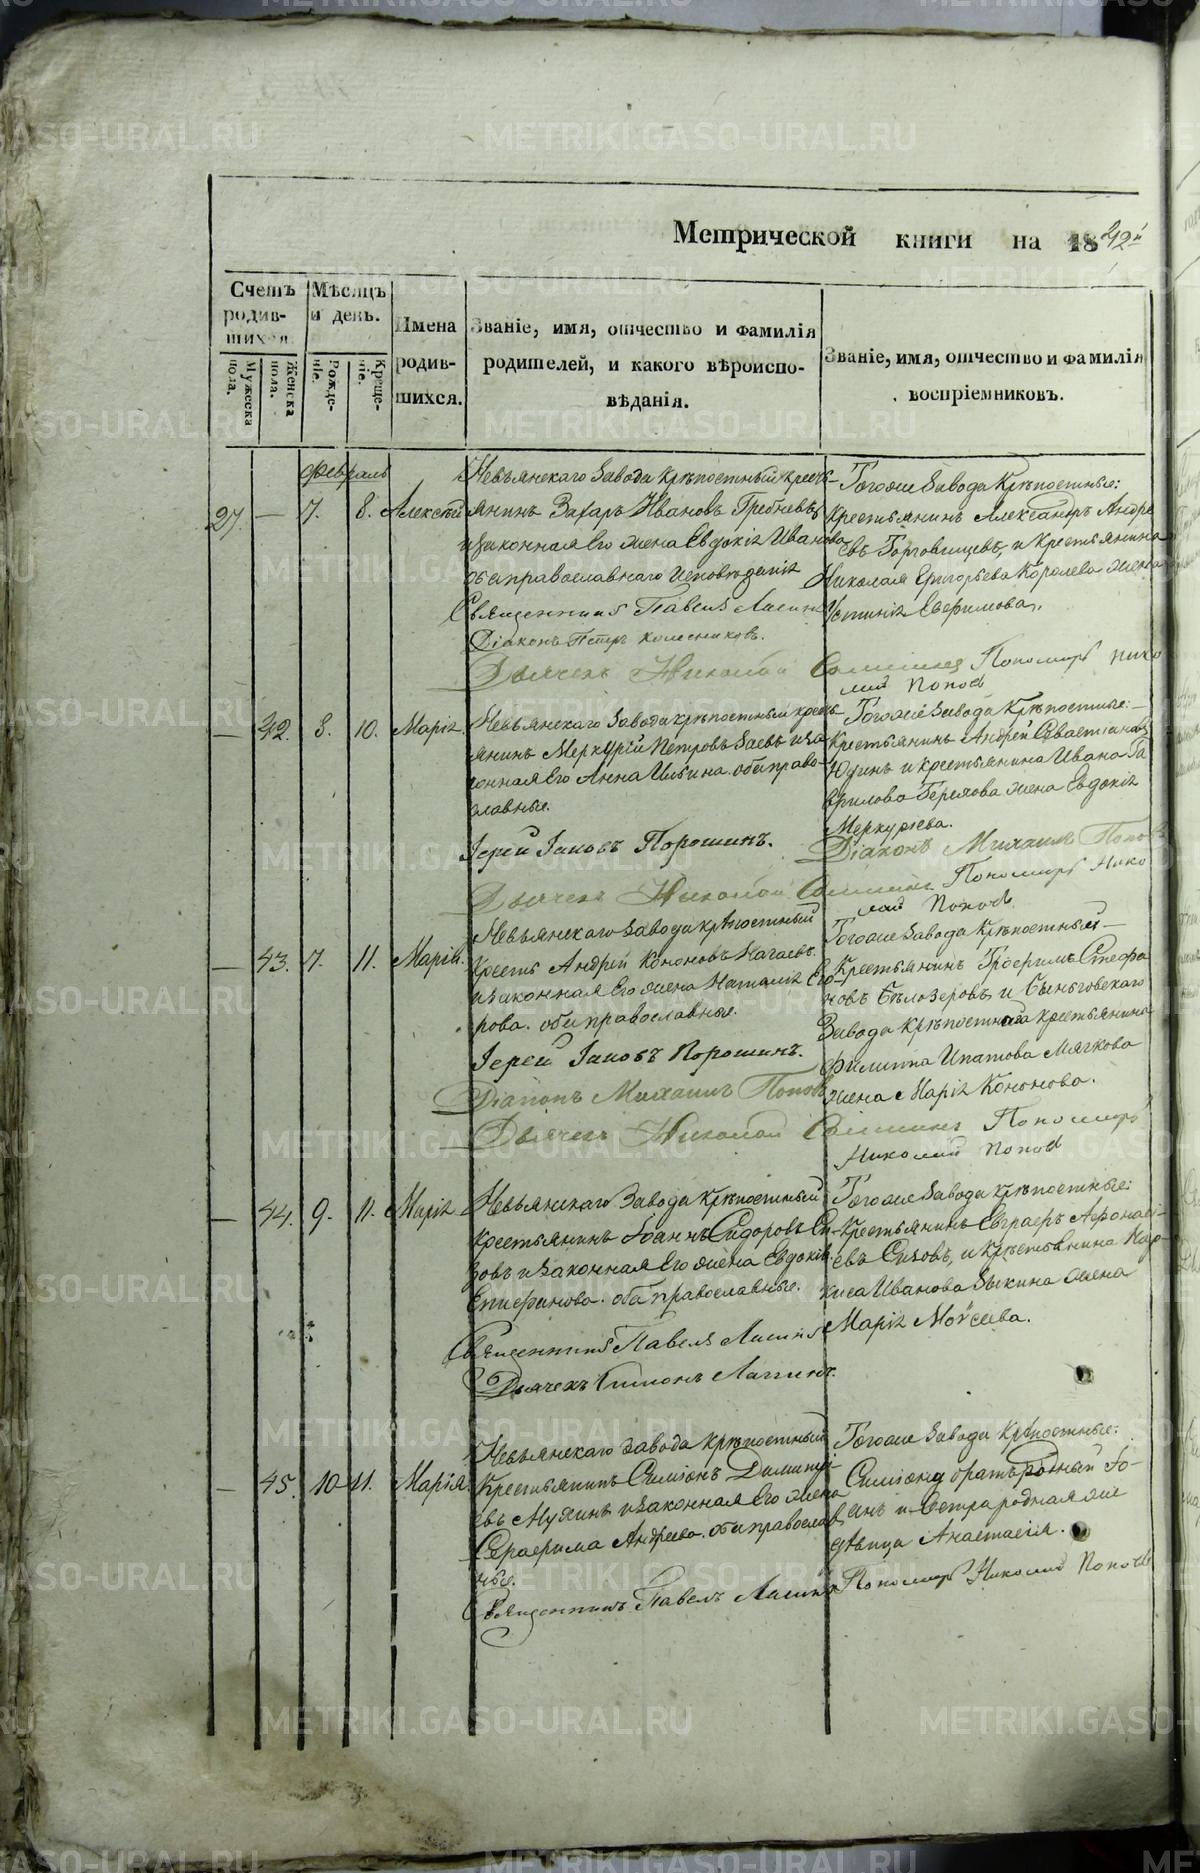 Метрической книги на 1842й
Счетъ родив-шихся
Мужеска пола.
Женска пола.
Мѣсяцъ и день.
Рожде-ніе.
Креще-ніе.
Имена родив-шихся.
Званіе, имя, отчество и фамилія
родителей, и какого вѣроиспо-
вѣданія.
Званіе, имя, отчество и фамилія
воспріемниковъ.
Февраль
27. — 7. 8. Алексѣй
Невьянскаго Завода крѣпостный крест-
янинъ Захаръ Ивановъ Гребневъ,
и законная Его жена Евдокія Иванова
оба православнаго исповѣданія
Священникъ Павелъ
Діаконъ Петръ Колесниковъ.
Дьячекъ Николай
Тогоже Завода Крѣпостные:
Крестьянинъ Александръ Андре
евъ и Крестьянина
Николая Григорьева Королева жена
Устинія Евфимова.
Пономарь Нико
лай Попов
— 42. 8. 10. Марія.
Невьянскаго Завода крѣпостный крест-
янинъ Меркурій Петровъ Заевъ и за
конная Его Анна оба право-
славные.
Іерей Іаковъ Порошинъ.
Дьячекъ Николай
Тогоже Завода Крѣпостные:
Крестьянинъ Андрей Севастіановъ
Юдинъ и крестьянина Ивана Га
врилова жена Евдокія
Меркурьева.
Діаконъ Михаилъ Попов
Пономарь Нико
лай Попов
— 43. 7. 11. Марія.
Невьянскаго Завода крѣпостный
Крестьян Андрей Кононовъ
и законная Его жена Наталія Его-
рова. оба православные.
Іерей Іаковъ Порошинъ.
Діаконъ Михаилъ Попов
Дьячекъ Николай
Тогоже Завода Крѣпостный
Крестьянинъ Трофимъ Стефа
новъ Бѣлозеровъ, и Быньговскаго
Завода Крѣпостнаго крестьянина
Филиппа Ипатова Мягкова
жена Марія Кононова.
Пономарь
Николай Попов
— 44. 9. 11. Марія
Невьянскаго Завода Крѣпостный
Крестьянинъ Іоаннъ Сидоровъ Си-
зовъ и законная Его жена Евдокія
Епифанова. оба православные.
Священникъ Павелъ
Дьячекъ Симонъ Лапинъ.
Тогоже Завода крѣпостные:
Крестьянинъ Евграфъ Афонась-
евъ Сизовъ, и крестьянина Кар-
Иванова Зыкина жена
Марія Моѵсеева.
— 45. 10. 11. Марія.
Невьянскаго Завода крѣпостный
Крестьянинъ Симіонъ Димитрі-
евъ Мухинъ и законная Его жена
Серафима Андреева. оба православ
ные.
Священникъ Павелъ
Тогоже Завода Крѣпостные:
Симіону братъ родный Іо-
анъ и Сестра родная же
дѣвица Анастасія.
Пономарь Николай Попов
METRIKI.GASO-URAL.RU